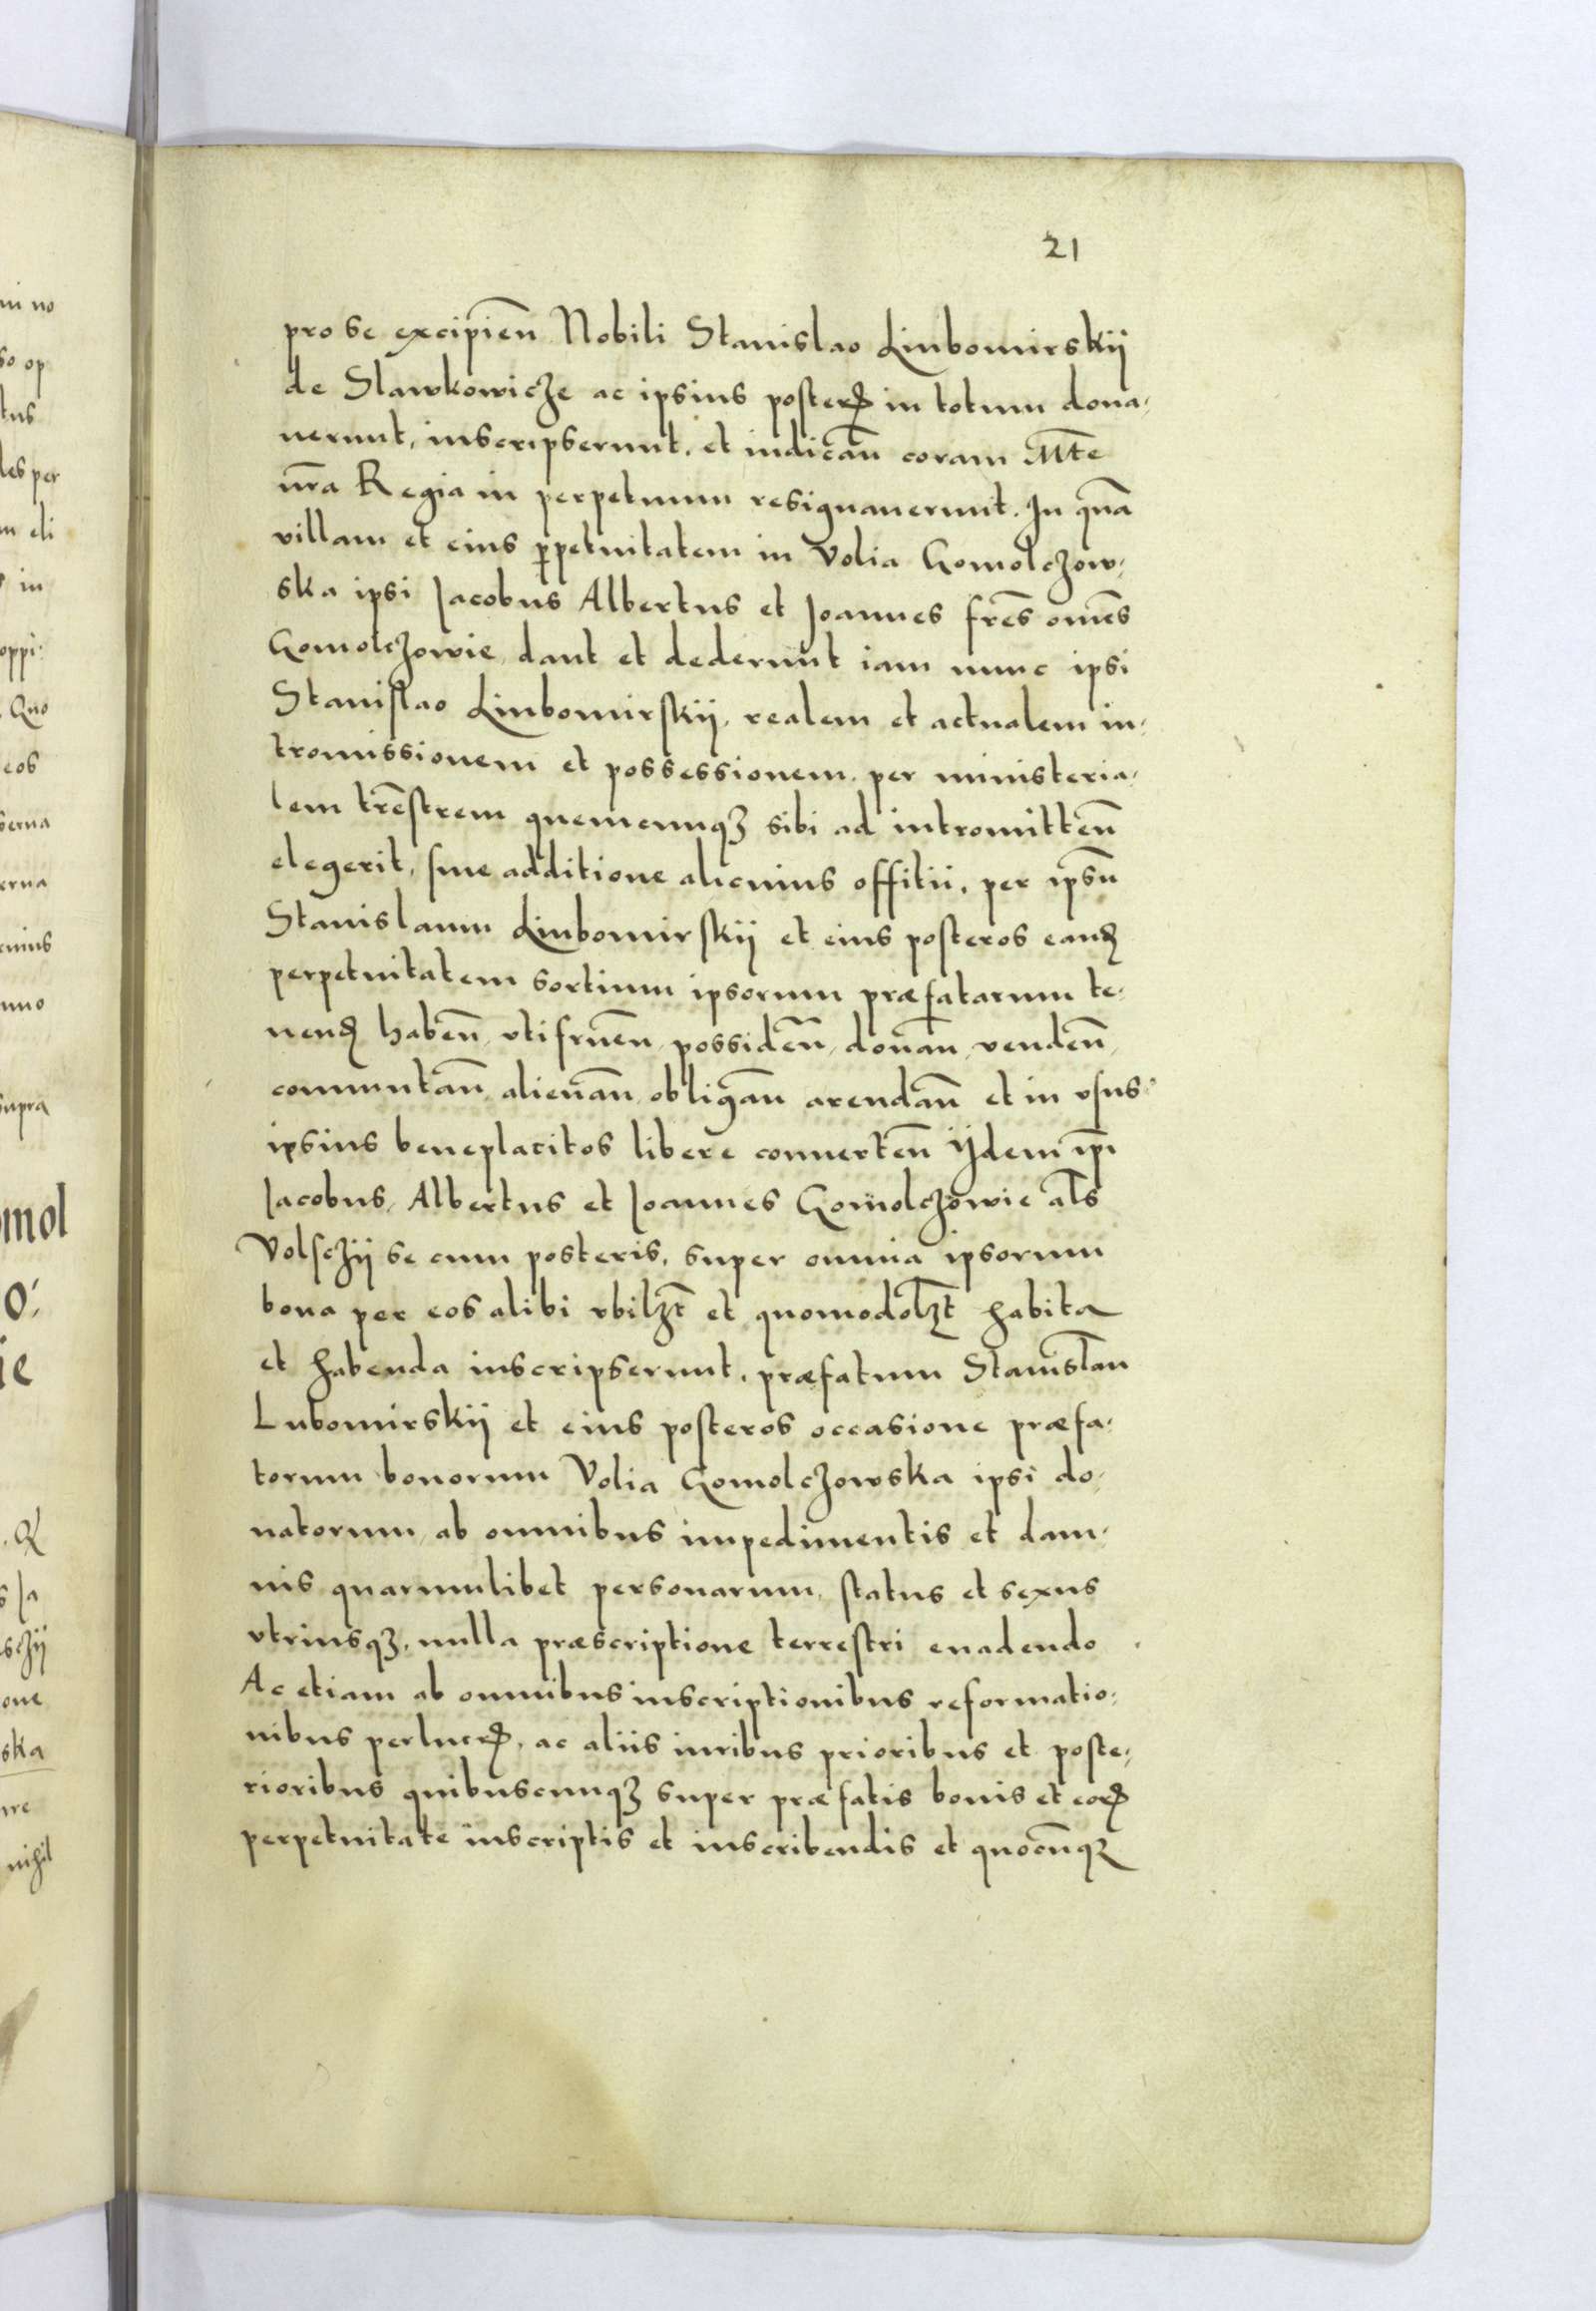 21
pro se excipien̄ Nobili Stanislao Liubomirskij
de Slawkowicze ac ipsius posteꝝ in totum dona-
uerunt, inscripserunt, et iudicān coram Mt̄e
nr̄a Regia in perpetuum resignauerunt. In quā
villam et eius ꝑpetuitatem in Volia Gomolczow-
ska ipsi Jacobus Albertus et Joannes fr̄es omēs
Gomolczowie, dant et dederunt iam nunc ipsi
Stanislao Liubomirskij, realem et actualem in-
tromissionem et possessionem. per ministeria-
lem trēstrem quemcunqꝫ sibi ad intromitten̄
elegerit, sine additione alicuius offitii, per ipsū
Stanislaum Liubomirskij et eius posteros eandꝫ
perpetuitatem sortium ipsorum præfatarum te-
nendꝫ haben̄, vtifruen̄, possiden̄, donan̄, venden̄,
commutan̄ alienan̄ obligan̄ arendan̄ et in vsus
ipsius beneplacitos libere conuerten̄ Ijdem ip̄i
Jacobus, Albertus et Joannes Gomolczowie al̄s
Volsczij se cum posteris, super omnia ipsorum
bona per eos alibi vbilꝫt et quomodolꝫt habita
et habenda inscripserunt, præfatum Stanislau̅
Lubomirskij et eius posteros occasione præfa-
torum bonorum Volia Gomolczowska ipsi do-
natorum, ab omnibus impedimentis et dam-
nis quarumlibet personarum, status et sexus
vtriusqꝫ, nulla præscriptione terrestri euadendo
Ac etiam ab omnibus inscriptionibus reformatio-
nibus perlucꝝ, ac aliis iuribus prioribus et poste-
rioribus quibuscunqꝫ super præfatis bonis et eoꝝ
perpetuitate inscriptis et inscribendis et quocūqꝫ